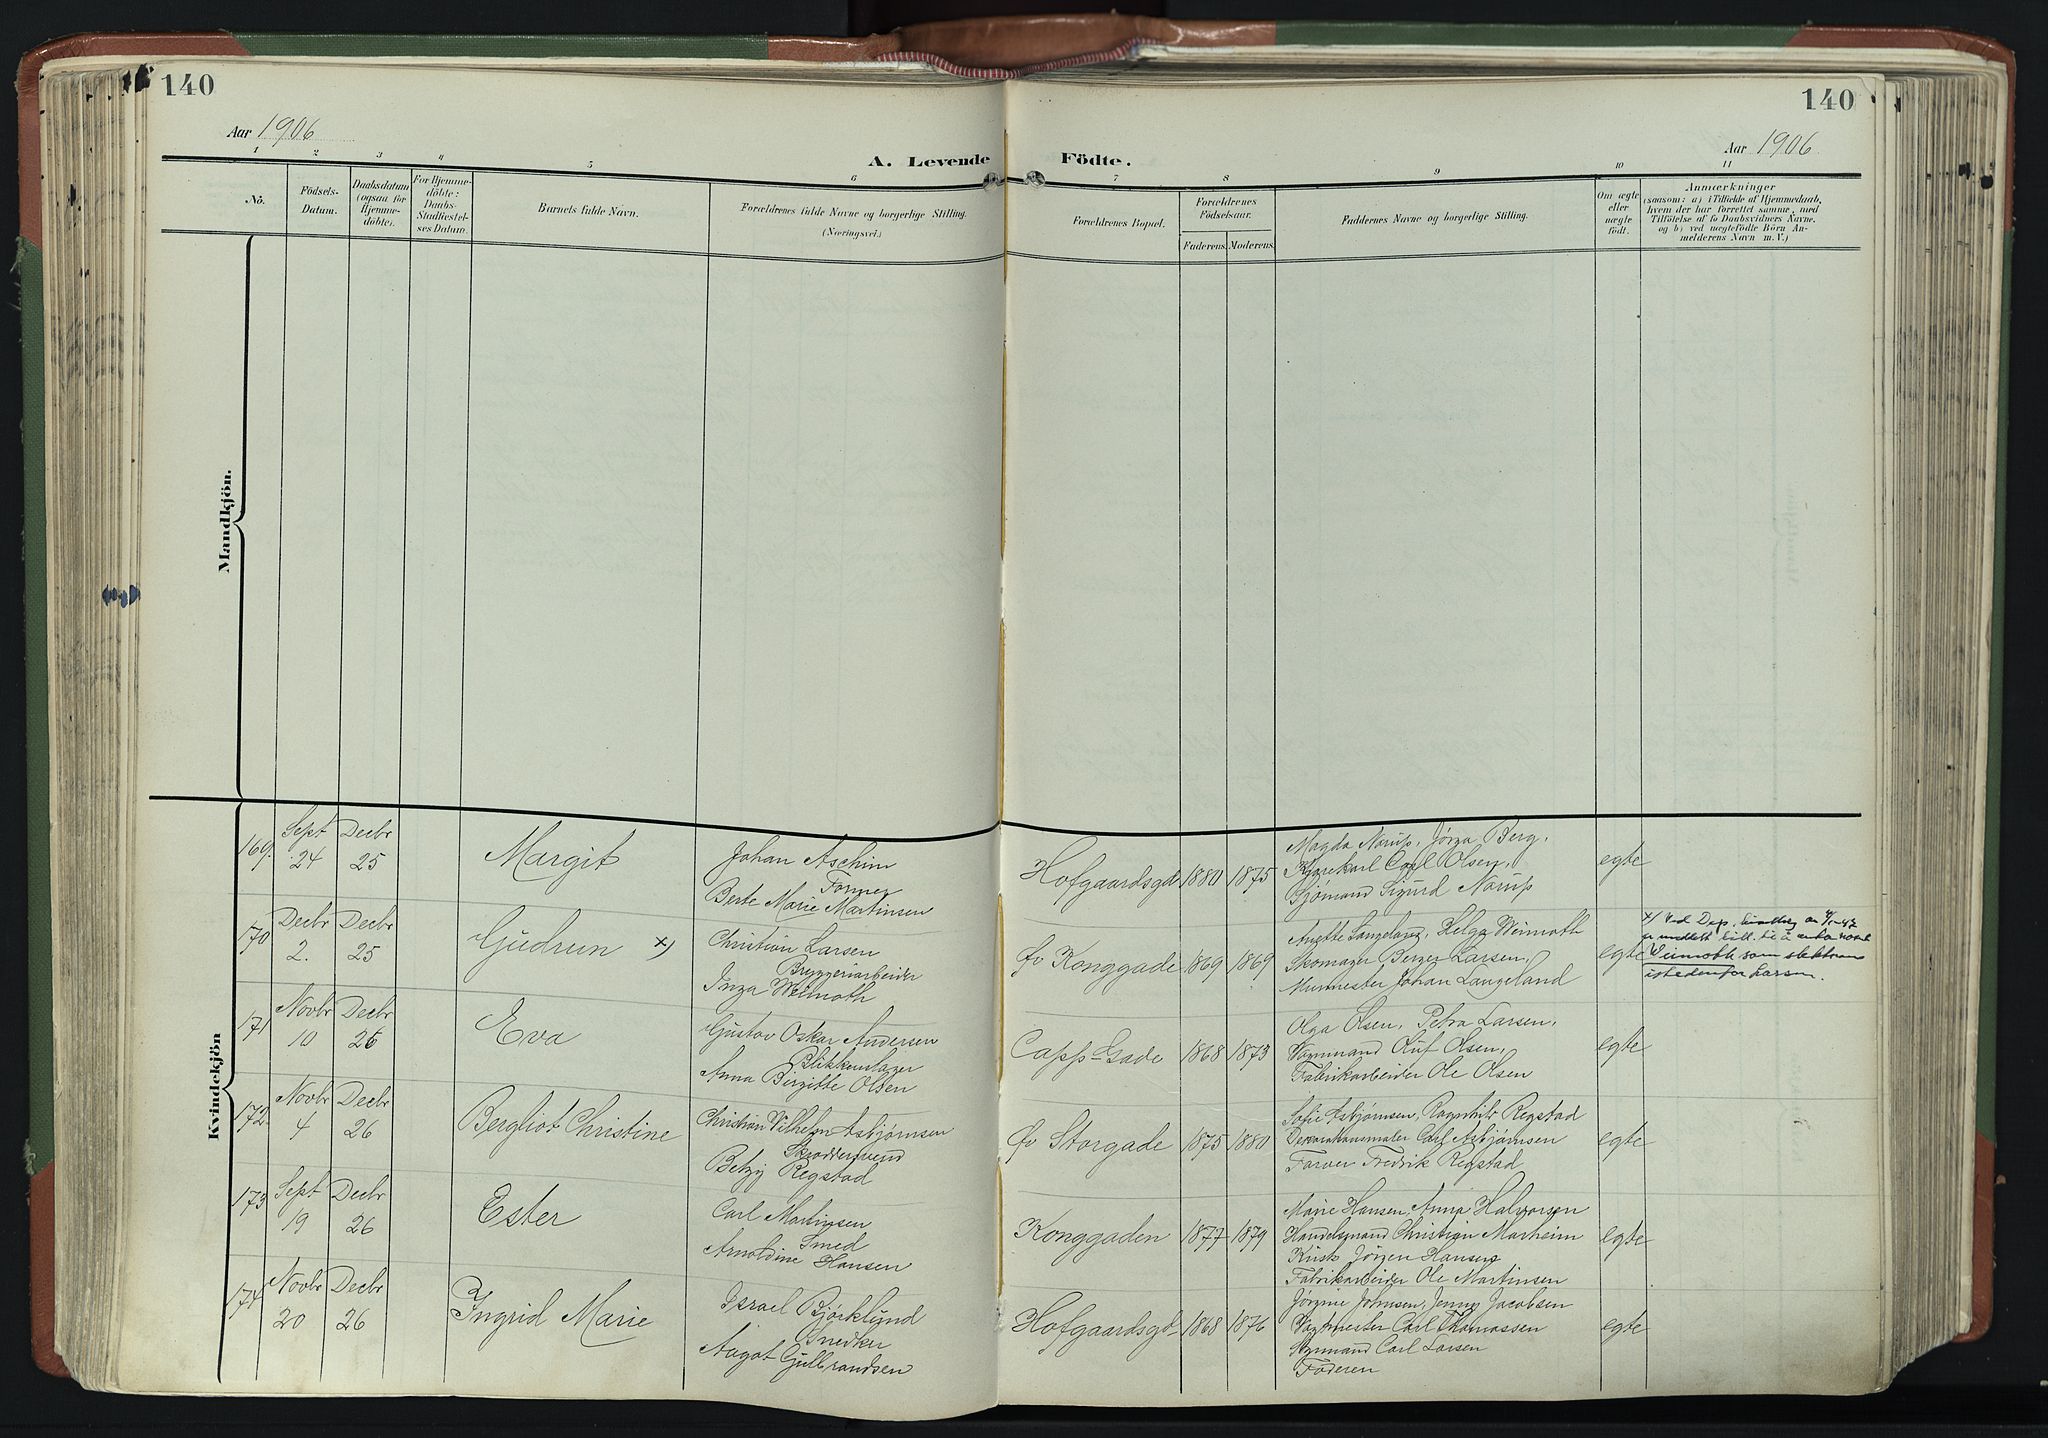 140
140
Aar 1906
Aar 1906
A. Levende Födte.
1 2 3 4 5 6 7 8 9 10 11
No.
Födsels-
Datum.
Daabsdatum
(ogsaa for
Hjemme-
döbte).
For Hjemme-
döbte:
Daabs-
Stadfæstel-
ses Datum.
Barnets fulde Navn.
Forældrenes fulde Navne og borgerlige Stilling.
(Næringsvei.)
Forældrenes Bopæl.
Forældrenes
Födselsaar.
Faderens.
Moderens.
Faddernes Navne og borgerlige Stilling.
Om ægte
eller
uægte
födt.
Anmærkninger
(saasom: a) i Tilfælde af Hjemmedaab,
hvem der har forrettet samme, med
Tilföielse af to Daabsvidners Navne,
og b) ved uægtefödte Börn An-
melderens Navn m. V.)
Mandkjön.
Kvindekjön
169.
Sept
24
Decbr
25
Margit
Johan Aschim
Former
Berte Marie Martinsen
Hofgaardsgd
1880
1875
Magda Norup, Jørga Berg,
Kjørekarl Carl Olsen,
Sjømand Sigurd Norup
egte
170
Decbr
2.
Decbr
25
Gudrun x)
Christian Larsen
Bryggeriarbeider
Inga Weimoth
Øv Konggade
1869
1869
Anette Langeland, Helga Weimoth
Skomager Berger Larsen,
Murmester Johan Langeland
egte
x) Ved Dep.
Weimoth som slektsnavn
istedenfor Larsen.
171
Novbr
10
Decbr
26
Eva
Gustav Oskar Andersen
Blikkenslager
Anna Birgitte Olsen
Capp. Gade
1868
1873
Olga Olsen, Petra Larsen,
Vognmand Oluf Olsen,
Fabrikarbeider Ole Olsen
egte
172
Novbr
4
Decbr
26
Bergliot Christine
Christian Vilhelm Asbjørnsen
Skræddersvend
Betzy Regstad
Øv Storgade
1875
1880
Sofie Asbjørnsen, Ragnhild Regstad
Dekorationsmaler Carl Asbjørnsen
Farver Fredrik Regstad
egte
173
Sept
19
Decbr
26
Ester
Carl Martinsen
Smed
Arnoldine Hansen
Konggaden
1877
1879
Marie Hansen, Anna Halvorsen
Handelsmand Christian Marheim
Kusk Jørgen Hansen
Fabrikarbeider Ole Martinsen
egte
174
Novbr
20
Decbr
26
Ingrid Marie
Israel Bjørklund
Snedker
Aagot Gulbrandsen
Hofgaardsgd
1868
1876
Jørgine Johnsen, Jenny Jacobsen
Vagtmester Carl Thomassen
Vognmand Carl Larsen
Faderen
egte